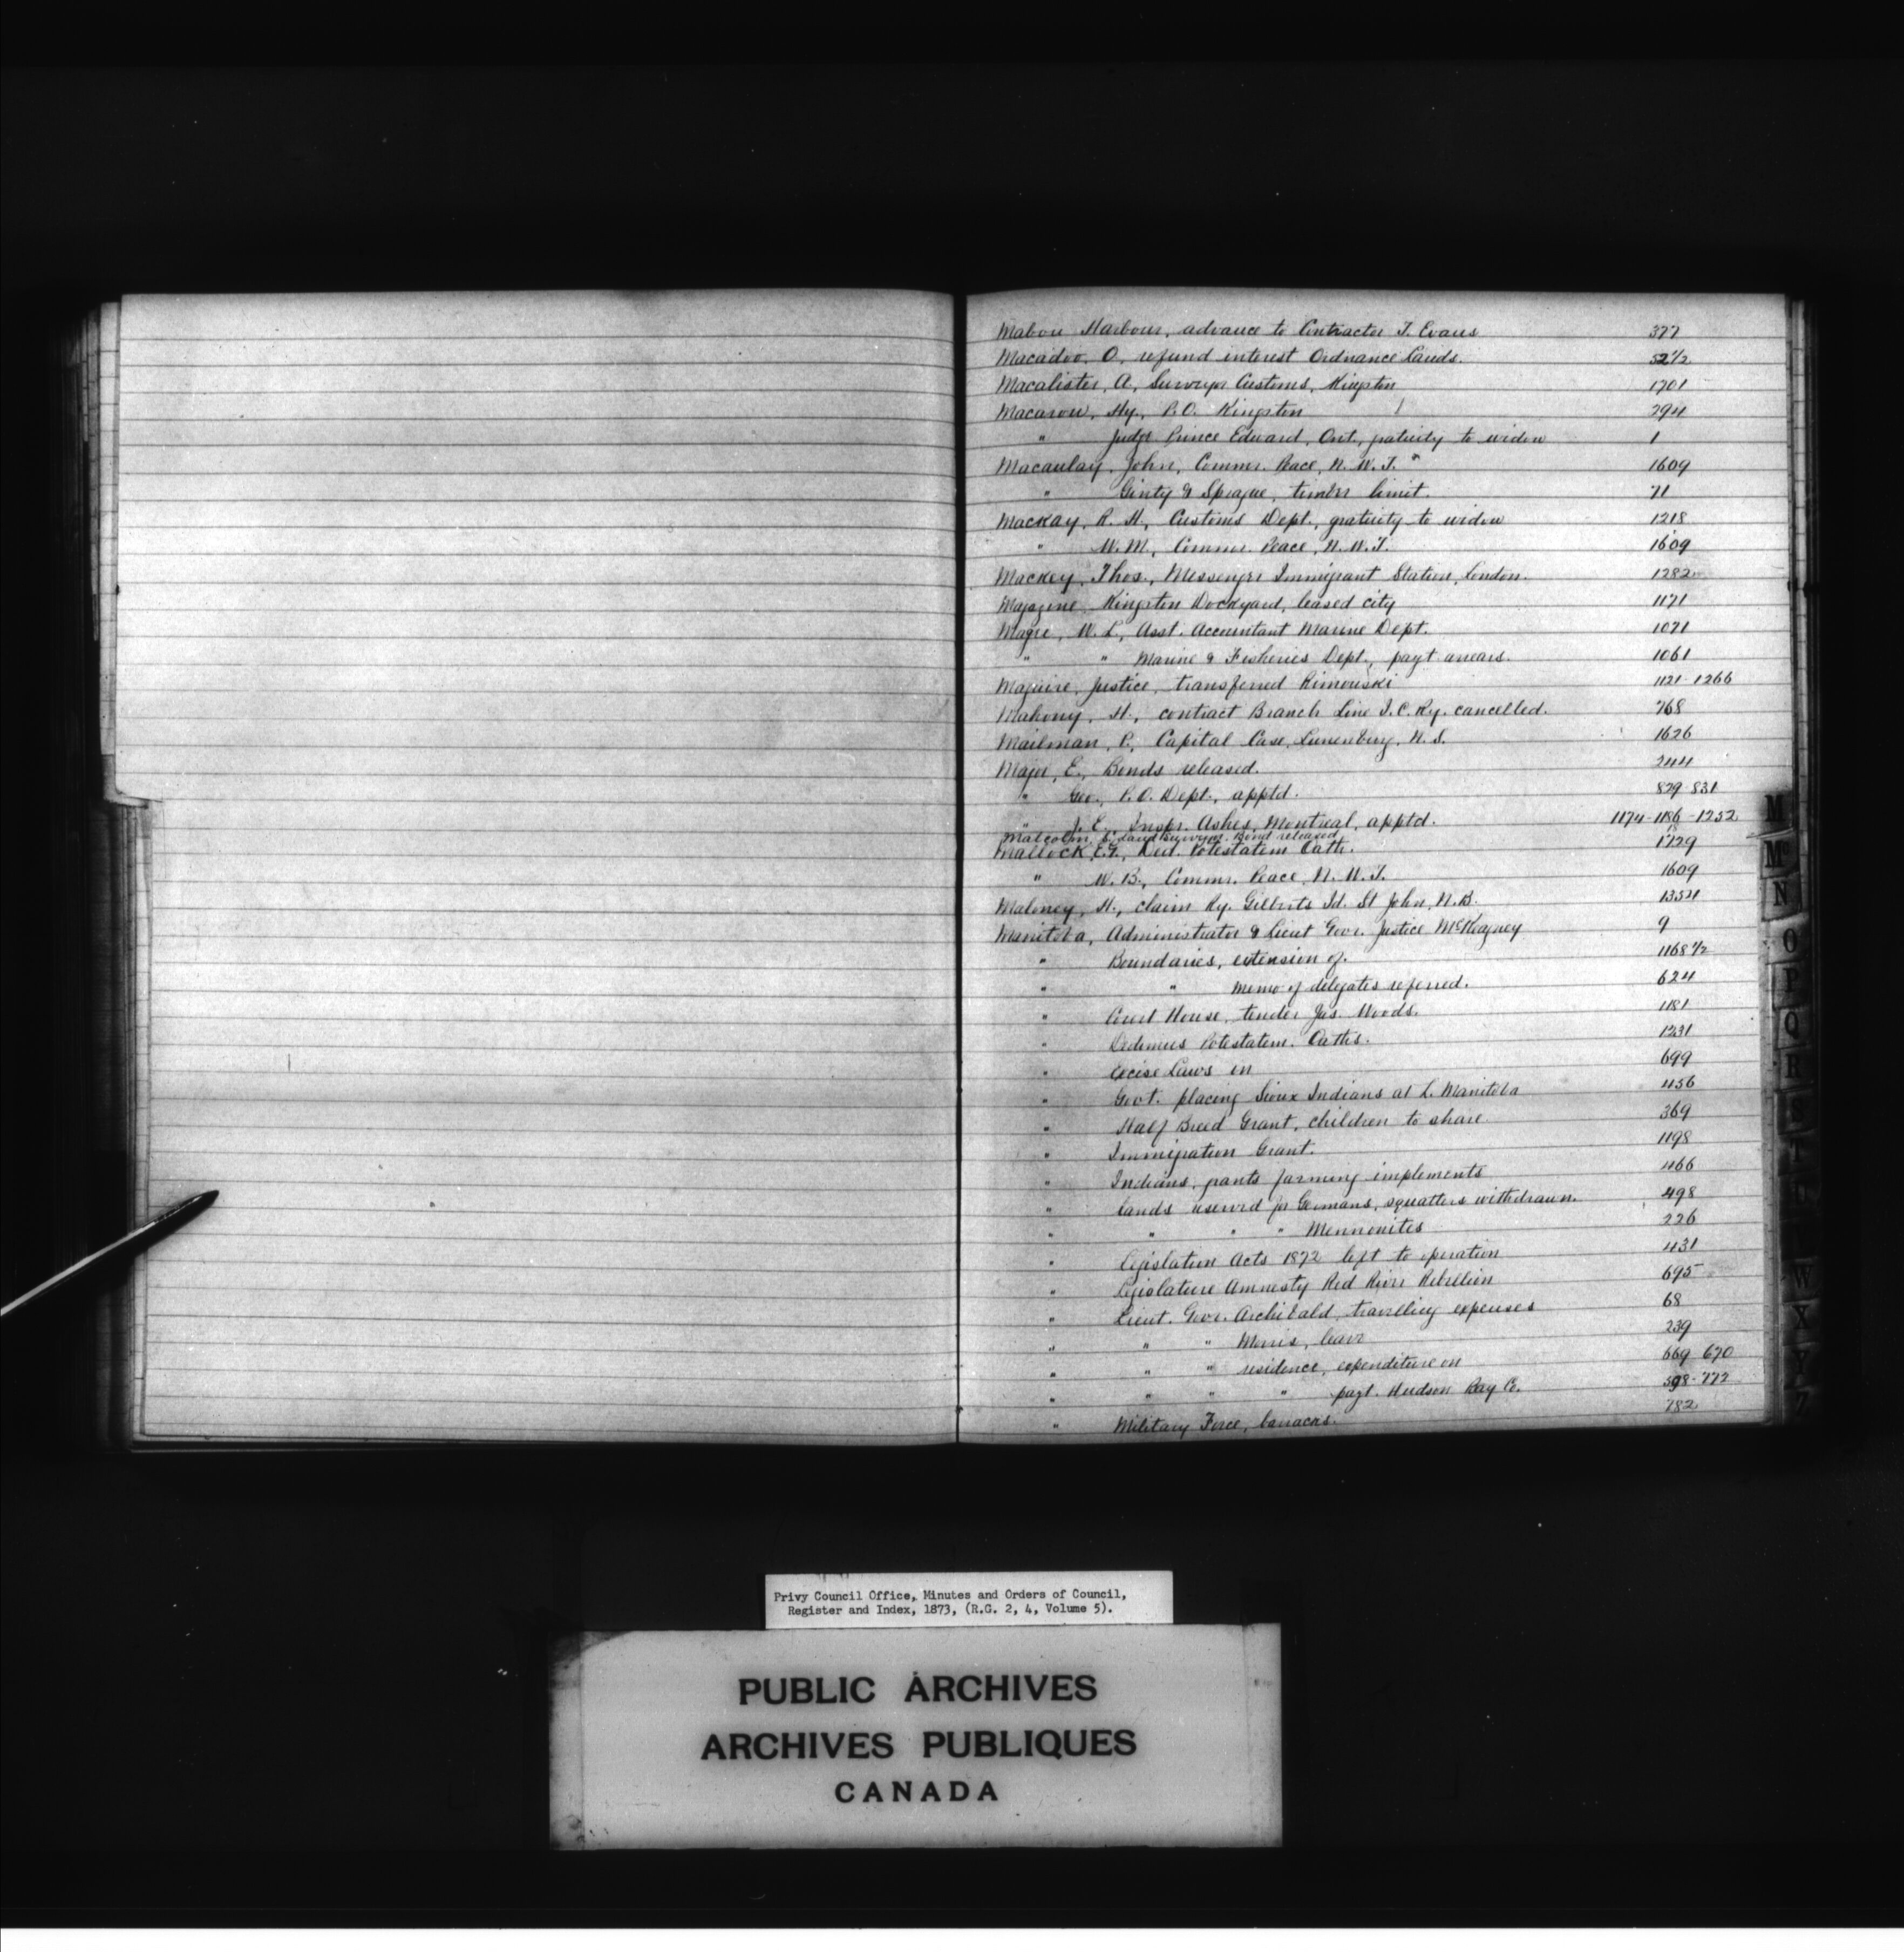 Mabou Harbour, advance to Contractor T. Evans 377
Macadoo, O, refund interest Ordnance Lands. 52 1/2
Macalister, A, Surveyor Customs, Kingston 1701
Macarow, Hy., P.O. Kingston 294
" Judge Prince Edward, Ont., gratuity to widow 1
Macaulay, John, Commr. Peace, N.W.T. 1609
" Ginty & Sprague, timber limit. 71
Mackay, R. H., Customs Dept., gratuity to widow 1218
" W. M., Commr. Peace, N.W.T. 1609
Mackey, Thos., Messenger Immigrant Station, London. 1282
Magazine, Kingston Dockyard, leased city 1171
Magee, W. L., Asst. Accountant Marine Dept. 1071
" " Marine & Fisheries Dept., payt arrears. 1061
Maguire, Justice, transferred Rimouski 1121-1266
Mahony, H., contract Branch Line I.C.Ry. cancelled. 768
Mailman, P., Capital Case, Lunenburg, N.S. 1626
Major, E., Bonds released. 244
" Geo., P.O. Dept., apptd. 829-831
" J. E. Inspr. Ashes, Montreal, apptd. 1174-1186-1252
Malcolm, S. Land Surveyor. Bond released 18
Mallock, E.G., Ded. Potestatem Oath. 1729
" W. B., Commr. Peace, N.W.T. 1609
Maloney, H., claim Ry. Gilberts Id. St John, N.B. 1354
Manitoba, Administrator & Lieut Govr. Justice McKeagney 9
" Boundaries, extension of. 1168 1/2
" " Memo of delegates referred. 624
" Court House, tender Jas. Woods. 1181
" Dedimus Potestatem. Oaths. 1231
" Excise Laws in 699
" Govt. placing Sioux Indians at L. Manitoba 456
" Half Breed Grant, children to share 369
" Immigration Grant. 1198
" Indians, grants farming implements 466
" Lands reserved for Germans, squatters withdrawn. 498
" " " " Mennonites 226
" Legislation Acts 1872 left to operation 431
" Legislature Amnesty Red River Rebellion 695
" Lieut. Govr. Archibald, travelling expenses 68
" " " Morris, leave 239
" " " residence, expenditure on 669-670
" " " " payt. Hudson Bay Co. 598-772
" Military Force, barracks. 782
M
Mc
N
O
P
Q
R
S
T
W
X
Y
Z
Privy Council Office, Minutes and Orders of Council,
Register and Index, 1873, (R.G. 2, 4, Volume 5).
PUBLIC ARCHIVES
ARCHIVES PUBLIQUES
CANADA